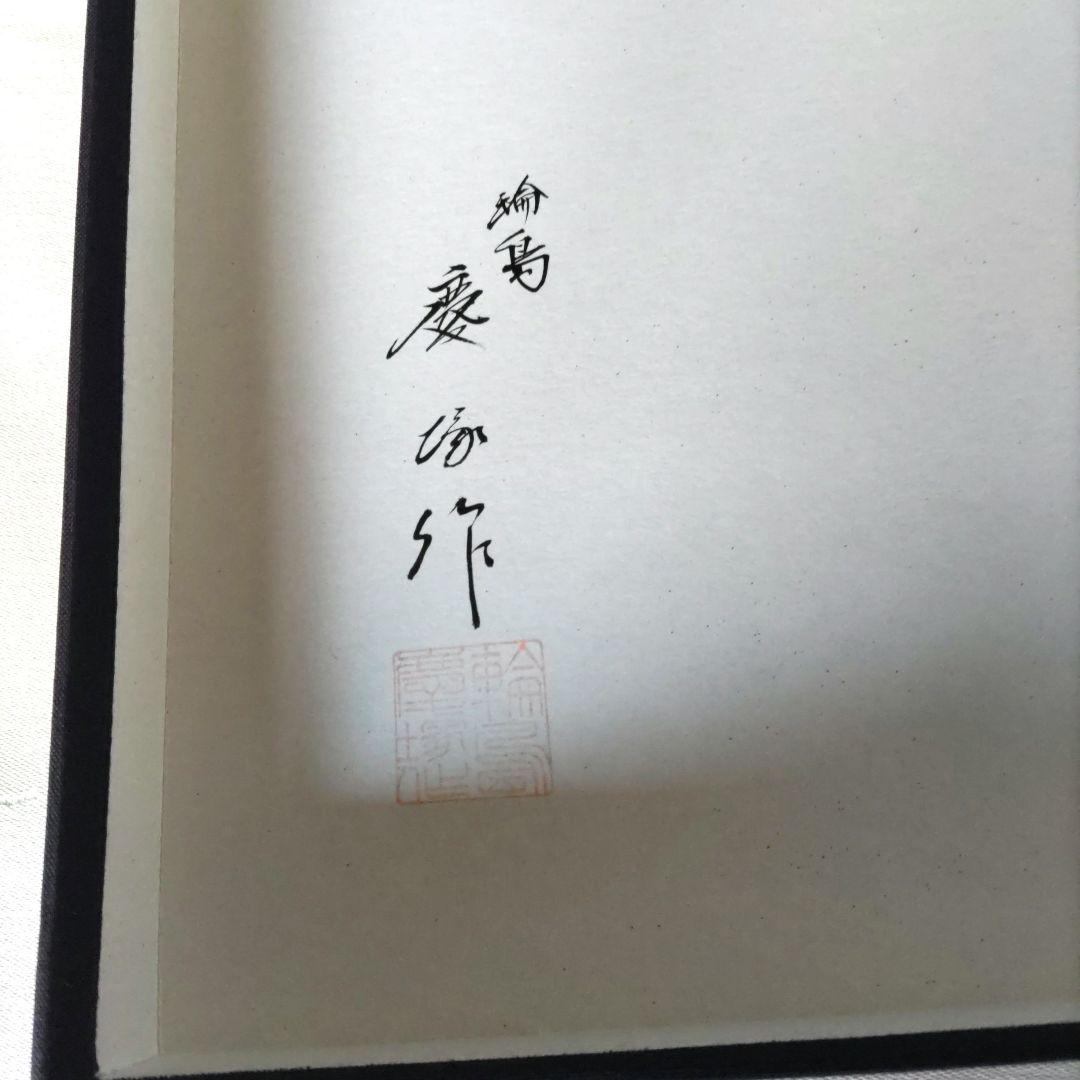 輪島
慶塚作
輪島
慶塚